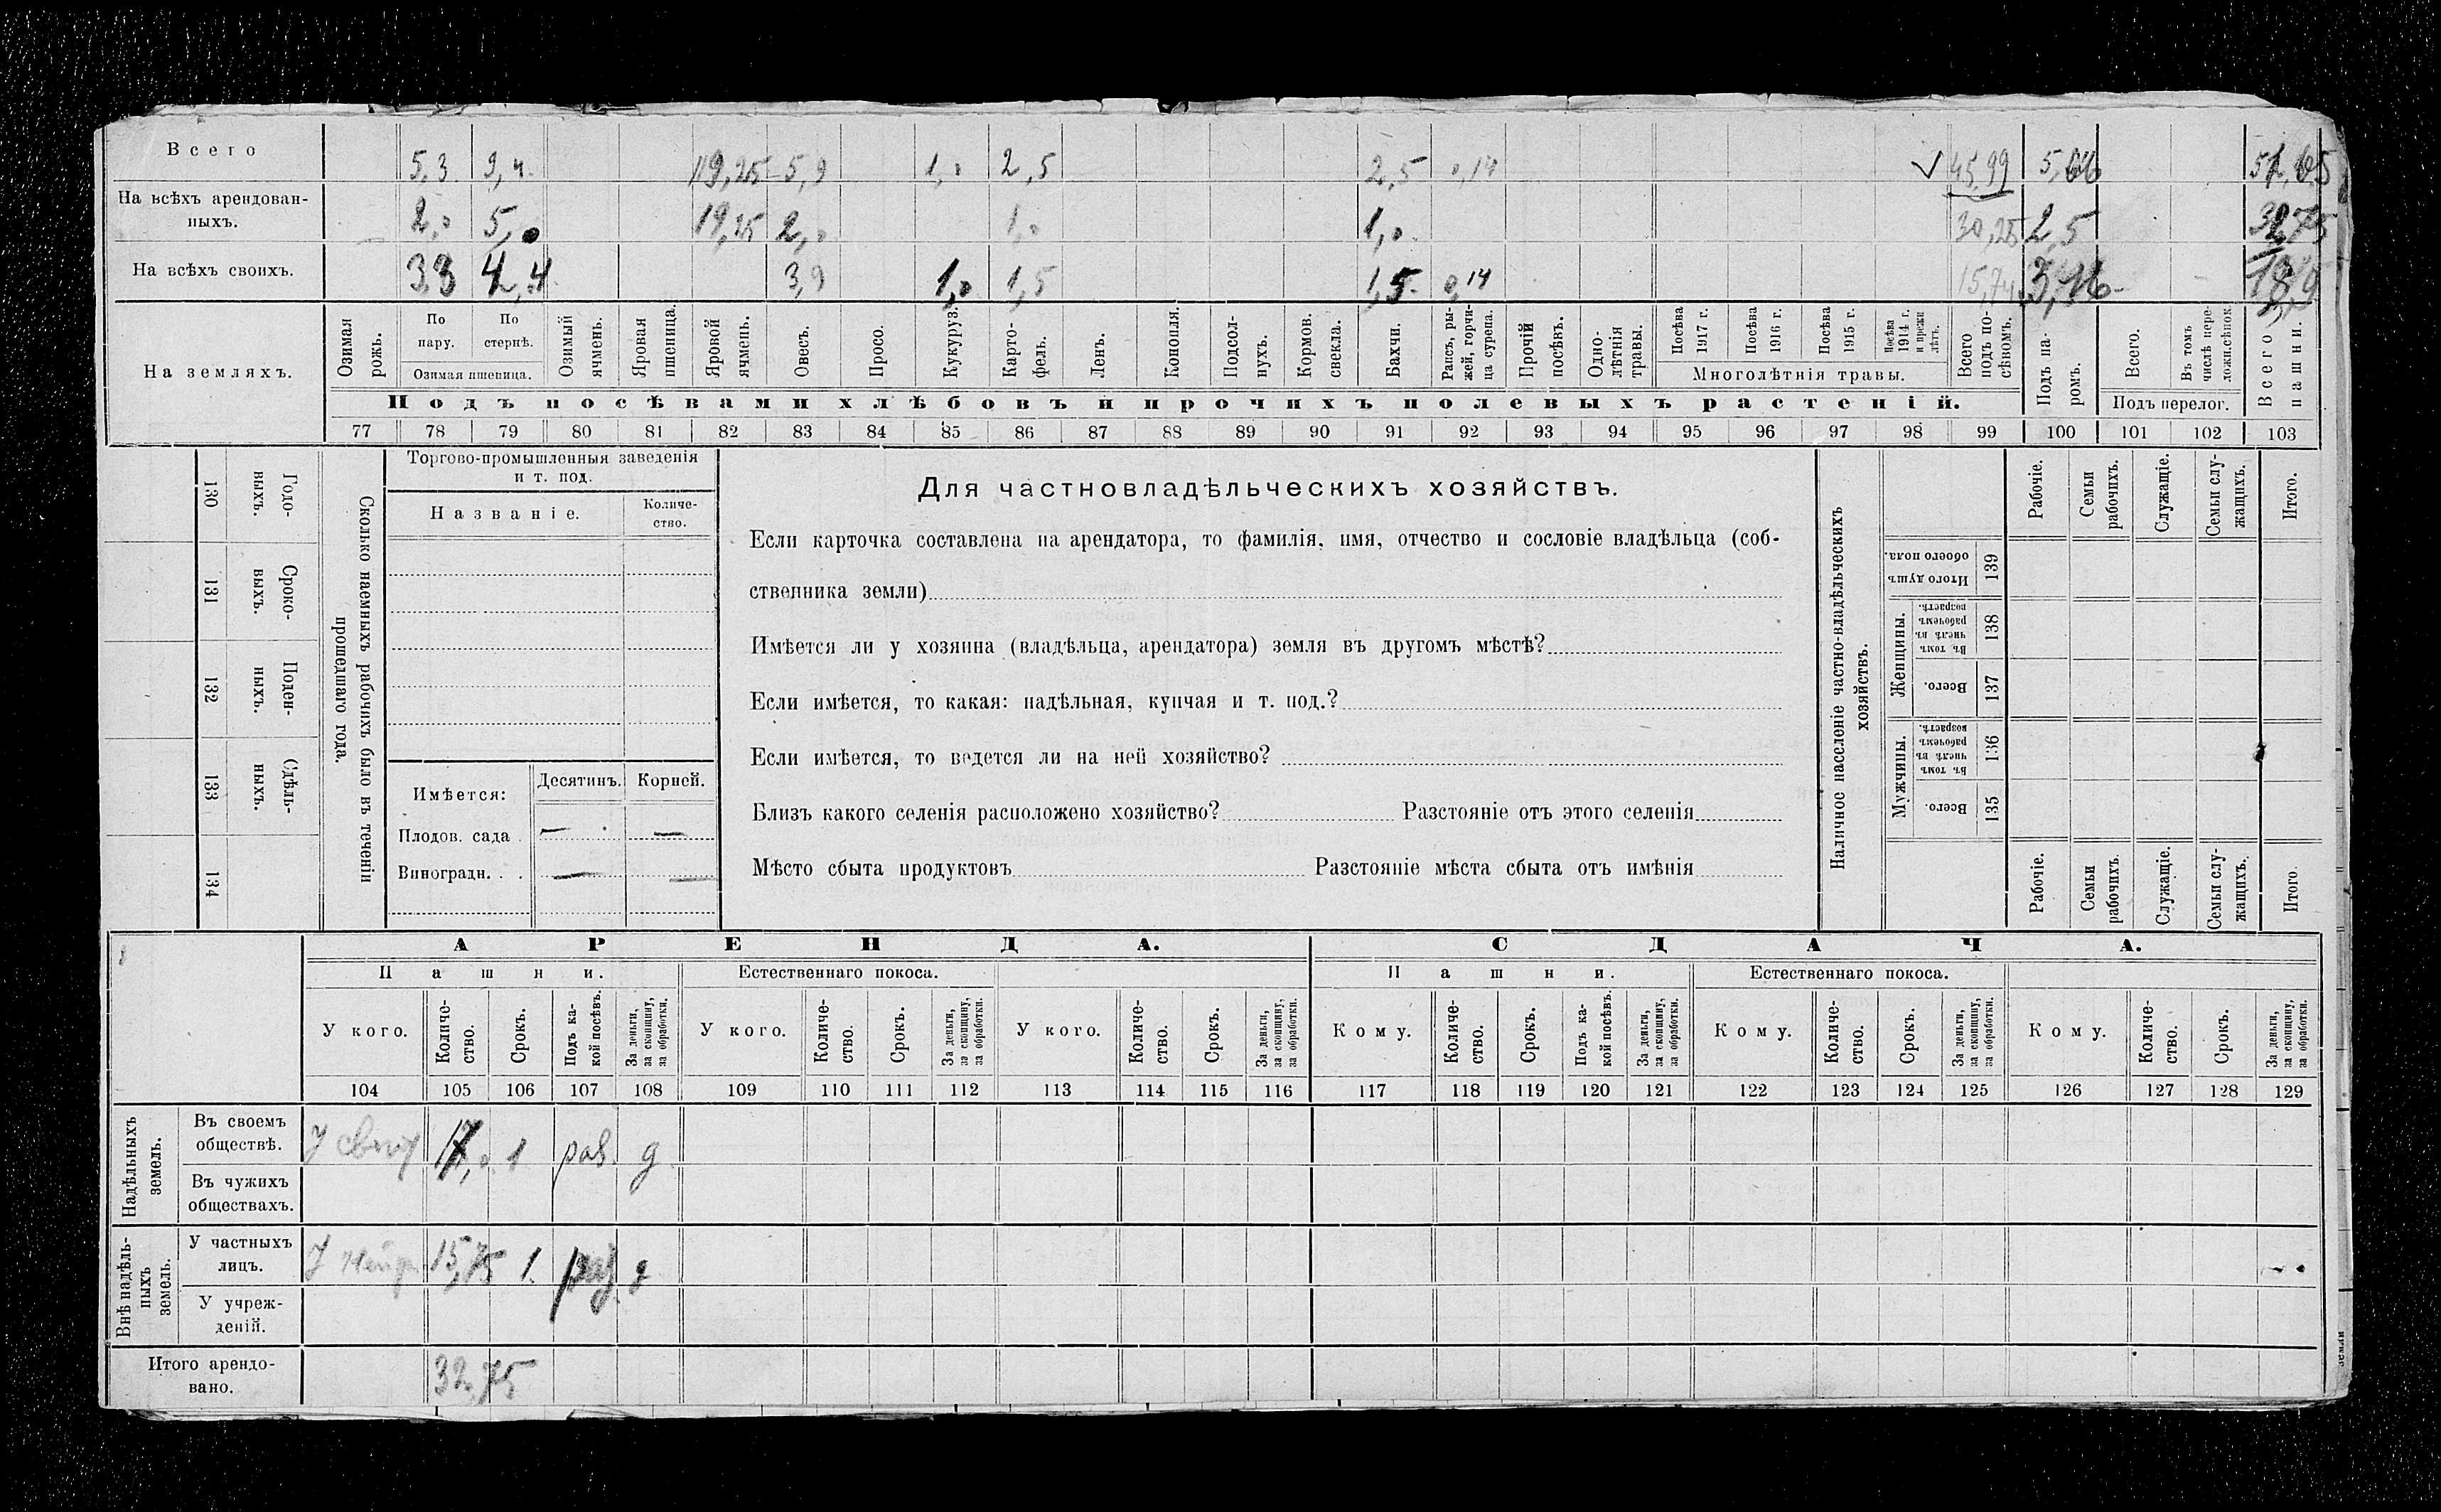 Всего 5,3 9,4 19,25 5,9 1,0 2,5 2,5 0,14 √ 45,99
На всѣхъ арендован-
ныхъ. 2,0 5,0 19,25 2,0 1,0 1,0 30,25 2,5 32,75
На всѣхъ своихъ. 3,3 4,4 3,9 1,0 1,5 1,5 0,14 15,74
На земляхъ.
Озимая рожь.
По пару.
По стернѣ.
Озимая пшеница.
Озимый ячмень.
Яровая пшеница.
Яровой ячмень.
Овесъ.
Просо.
Кукуруз.
Карто-
фель.
Ленъ.
Конопля.
Подсол-
нухъ.
Кормов. свекла.
Бахчи.
Рапсъ, ры-
жей, горчи-
ца сурепа.
Прочій посѣвъ.
Одно-
лѣтнія
травы.
Посѣва 1917 г.
Посѣва 1916 г.
Посѣва 1915 г.
Посѣва 1914 г. и прежн лѣтъ.
Многолѣтнія травы.
Всего подъ по-
сѣвомъ.
Подъ па-
ромъ.
Всего.
Въ томъ числѣ пере-
ложн.сѣнок.
Подъ перелог.
Всего пашни.
Подъ посѣвами хлѣбовъ и прочихъ полевыхъ растеній.
77 78 79 80 81 82 83 84 85 86 87 88 89 90 91 92 93 94 95 96 97 98 99 100 101 102 103
Годо-
ныхъ.
130
Сроко-
выхъ.
131
Поден-
ныхъ.
132
Сдѣль-
ныхъ.
133
134
Сколько наемныхъ рабочихъ было въ теченіи
прошедшаго года.
Торгово-промышленныя заведенія
и т. под.
Названіе.
Количе-
ство.
Имѣется: Десятинъ. Корней.
Плодов. сада . — —
Виноградн. . . — —
Для частновладѣльческихъ хозяйствъ.
Если карточка составлена на арендатора, то фамилія, имя, отчество и сословіе владѣльца (соб-
ственника земли)
Имѣется ли у хозяина (владѣльца, арендатора) земля въ другомъ мѣстѣ?
Если имѣется, то какая: надѣльная, купчая и т. под.?
Если имѣется, то ведется ли на ней хозяйство?
Близъ какого селенія расположено хозяйство? Разстояніе отъ этого селенія
Мѣсто сбыта продуктовъ Разстояніе мѣста сбыта отъ имѣнія
Наличное населеніе частно-владѣльческихъ
хозяйствъ.
Рабочіе.
Семьи рабочихъ.
Служащіе.
Семьи слу-
жащихъ.
Итого.
Итого душъ
обоего пола.
139
Женщины.
Въ томъ
числѣ въ
рабочемъ
возрастѣ.
138
Всего.
137
Мужчины.
Въ томъ
числѣ въ
рабочемъ
возрастѣ.
136
Всего.
135
Рабочіе.
Семьи рабочихъ.
Служащіе.
Семьи слу-
жащихъ.
Итого.
АРЕНДА. СДАЧА.
Пашни. Естественнаго покоса. Пашни. Естественнаго покоса.
У кого.
Количе-
ство.
Срокъ.
Подъ ка-
кой посѣвъ.
За деньги,
за скопщину,
за обработки.
У кого.
Количе-
ство.
Срокъ.
За деньги,
за скопщину,
за обработки.
У кого.
Количе-
ство.
Срокъ.
За деньги,
за скопщину,
за обработки.
Кому.
Количе-
ство.
Срокъ.
Подъ ка-
кой посѣвъ.
За деньги,
за скопщину,
за обработки.
Кому.
Количе-
ство.
Срокъ.
За деньги,
за скопщину,
за обработки.
Кому.
Количе-
ство.
Срокъ.
За деньги,
за скопщину,
за обработки.
104 105 106 107 108 109 110 111 112 113 114 115 116 117 118 119 120 121 122 123 124 125 126 127 128 129
Надѣльныхъ
земель.
Въ своемъ
обществѣ. У 17,0 1 д
Въ чужихъ
обществахъ.
Внѣ надѣль-
ныхъ
земель.
У частныхъ
лицъ. У 15,75 1. д
У учреж-
деній.
Итого арендо-
вано. 32,75